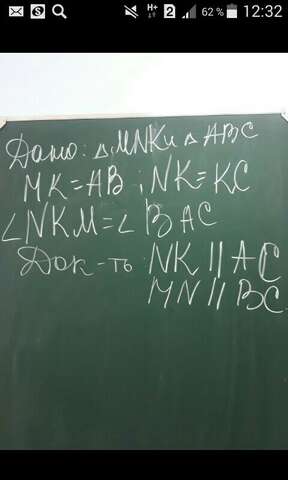 H+ 2 62% 12:32
Дано: △ MNK и △ ABC
MK=AB; NK=KC
∠NKM=∠BAC
Док-ть: NK || AC
MN || BC